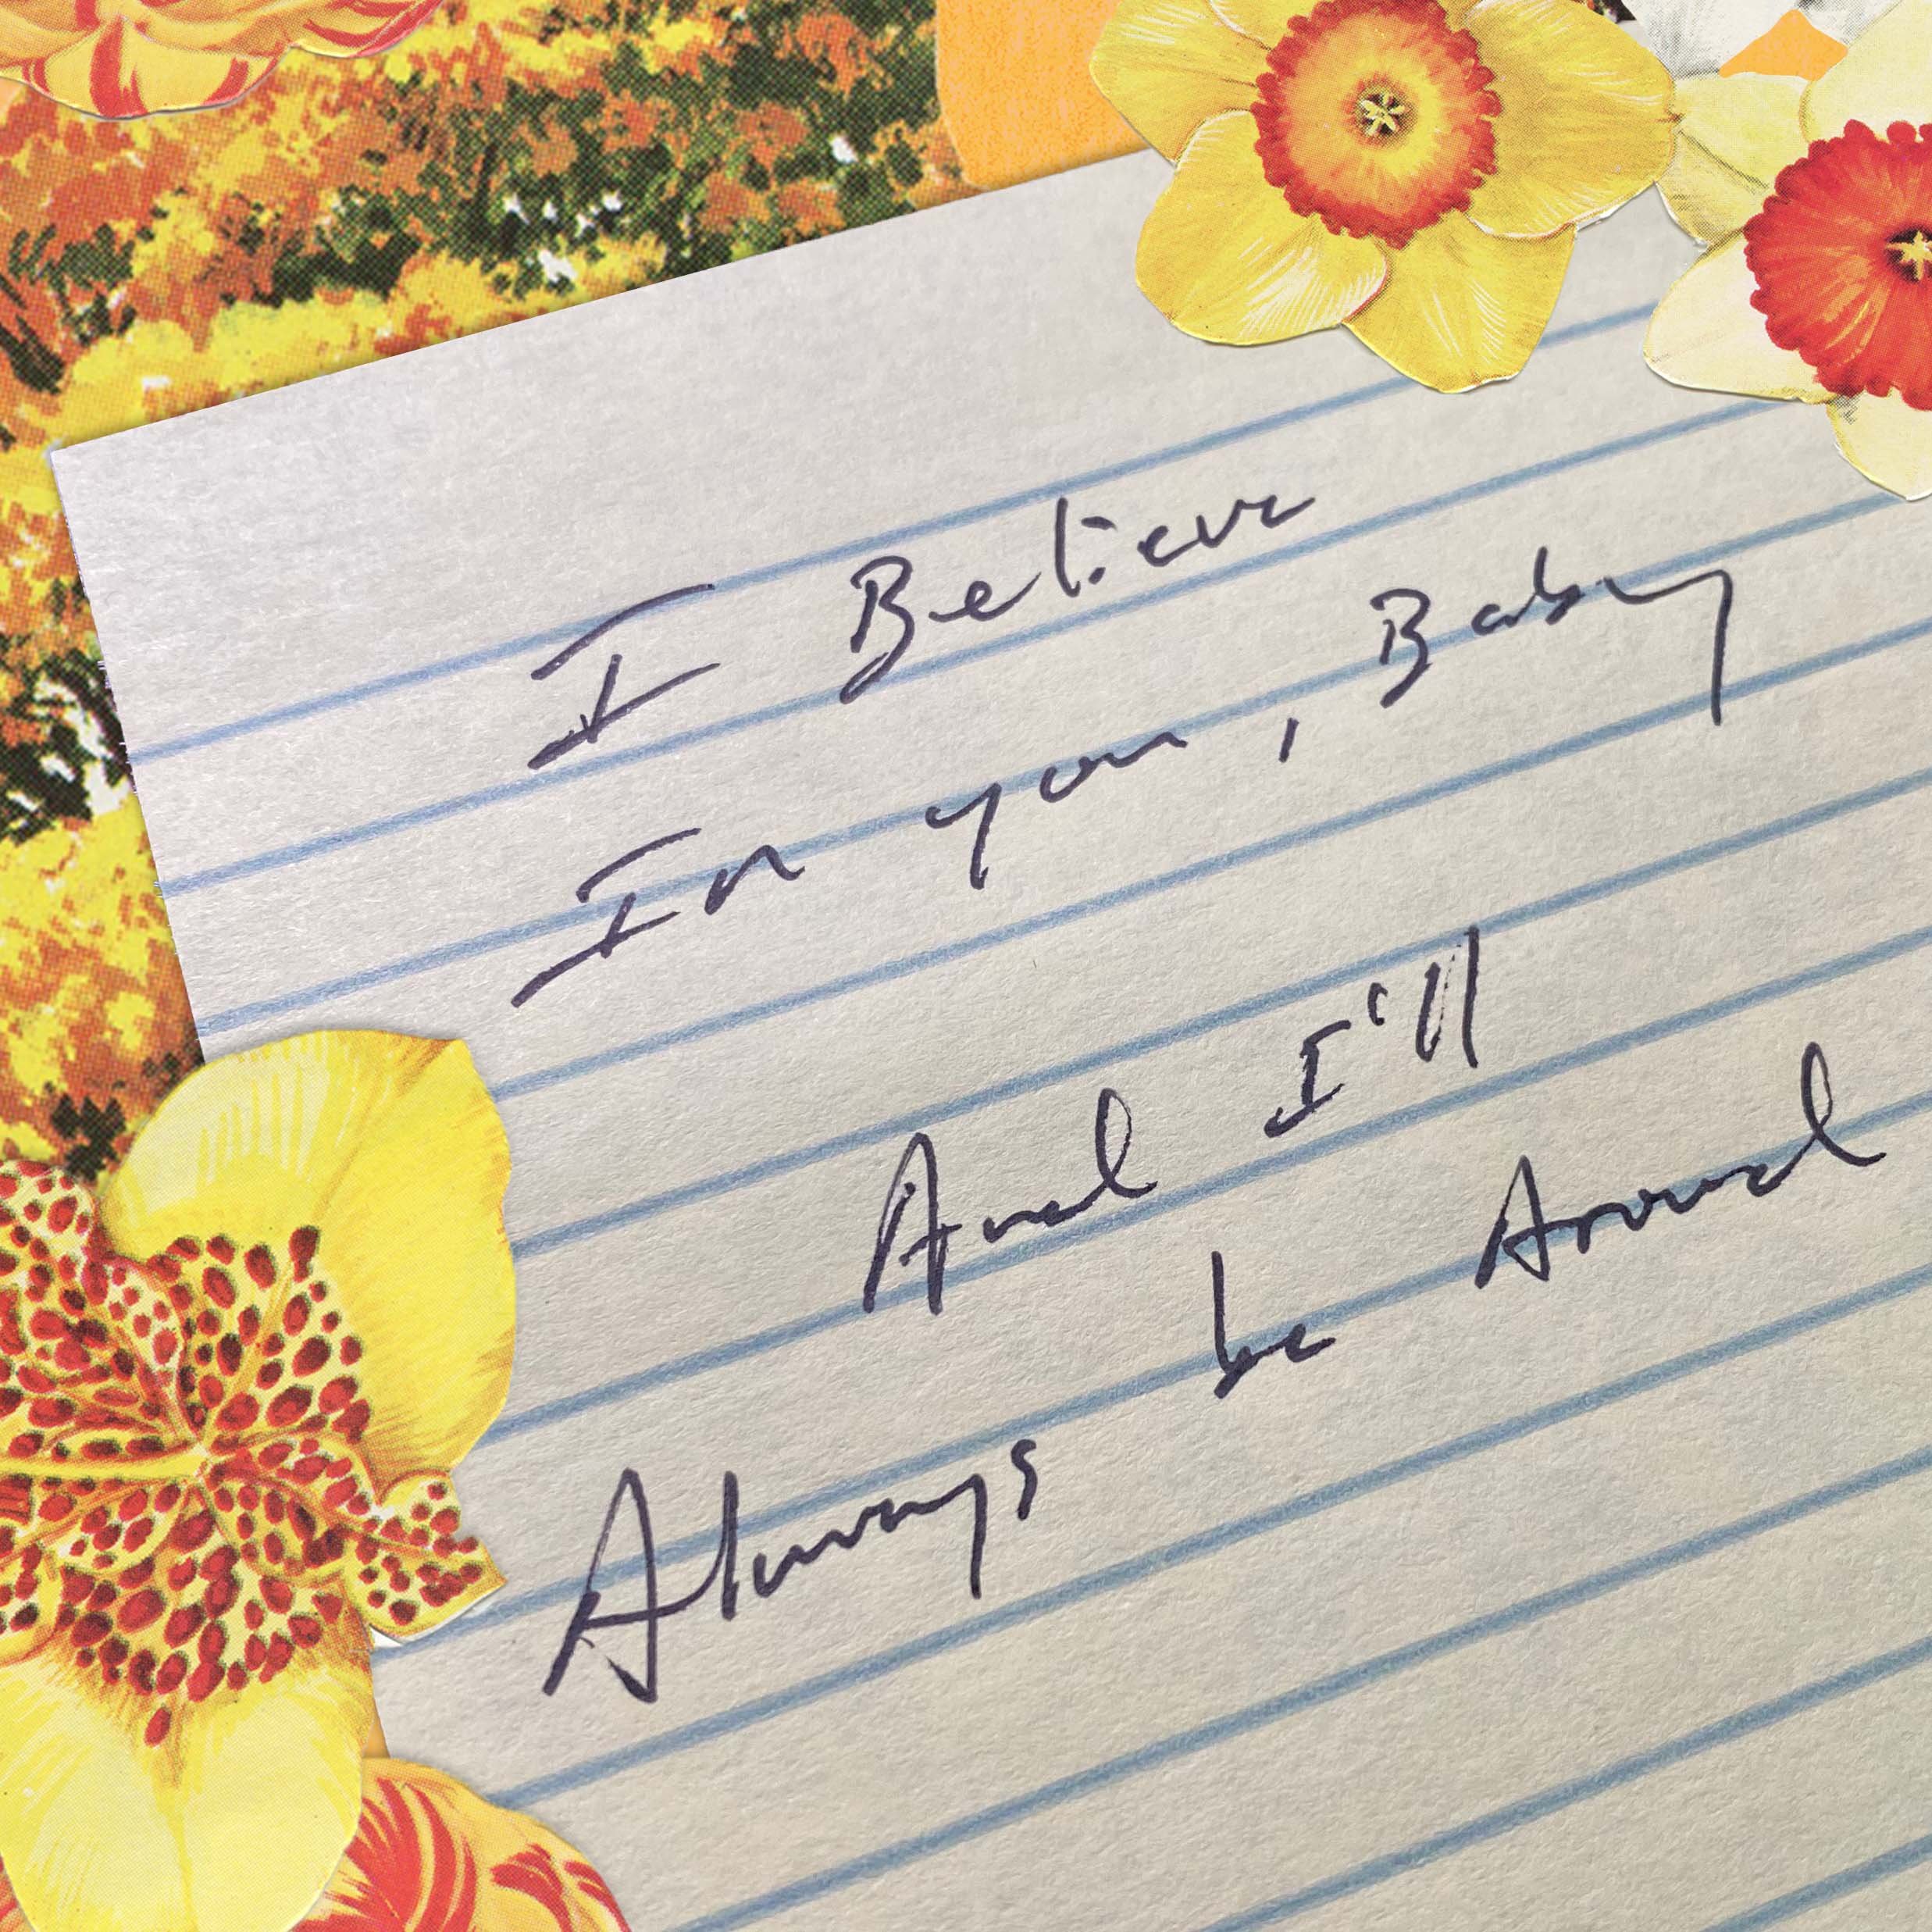 I Believe
In you, Baby
And I'll
Always be Around